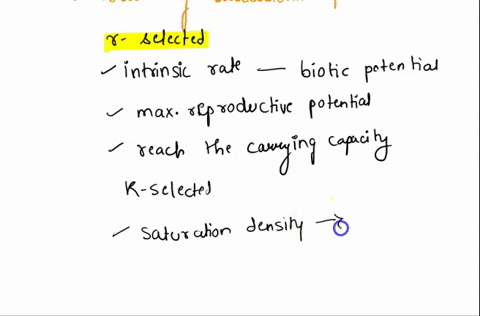 r- selected
✓ intrinsic rate — biotic potential
✓ max. reproductive potential
✓ reach the carrying capacity
K-selected
✓ saturation density →